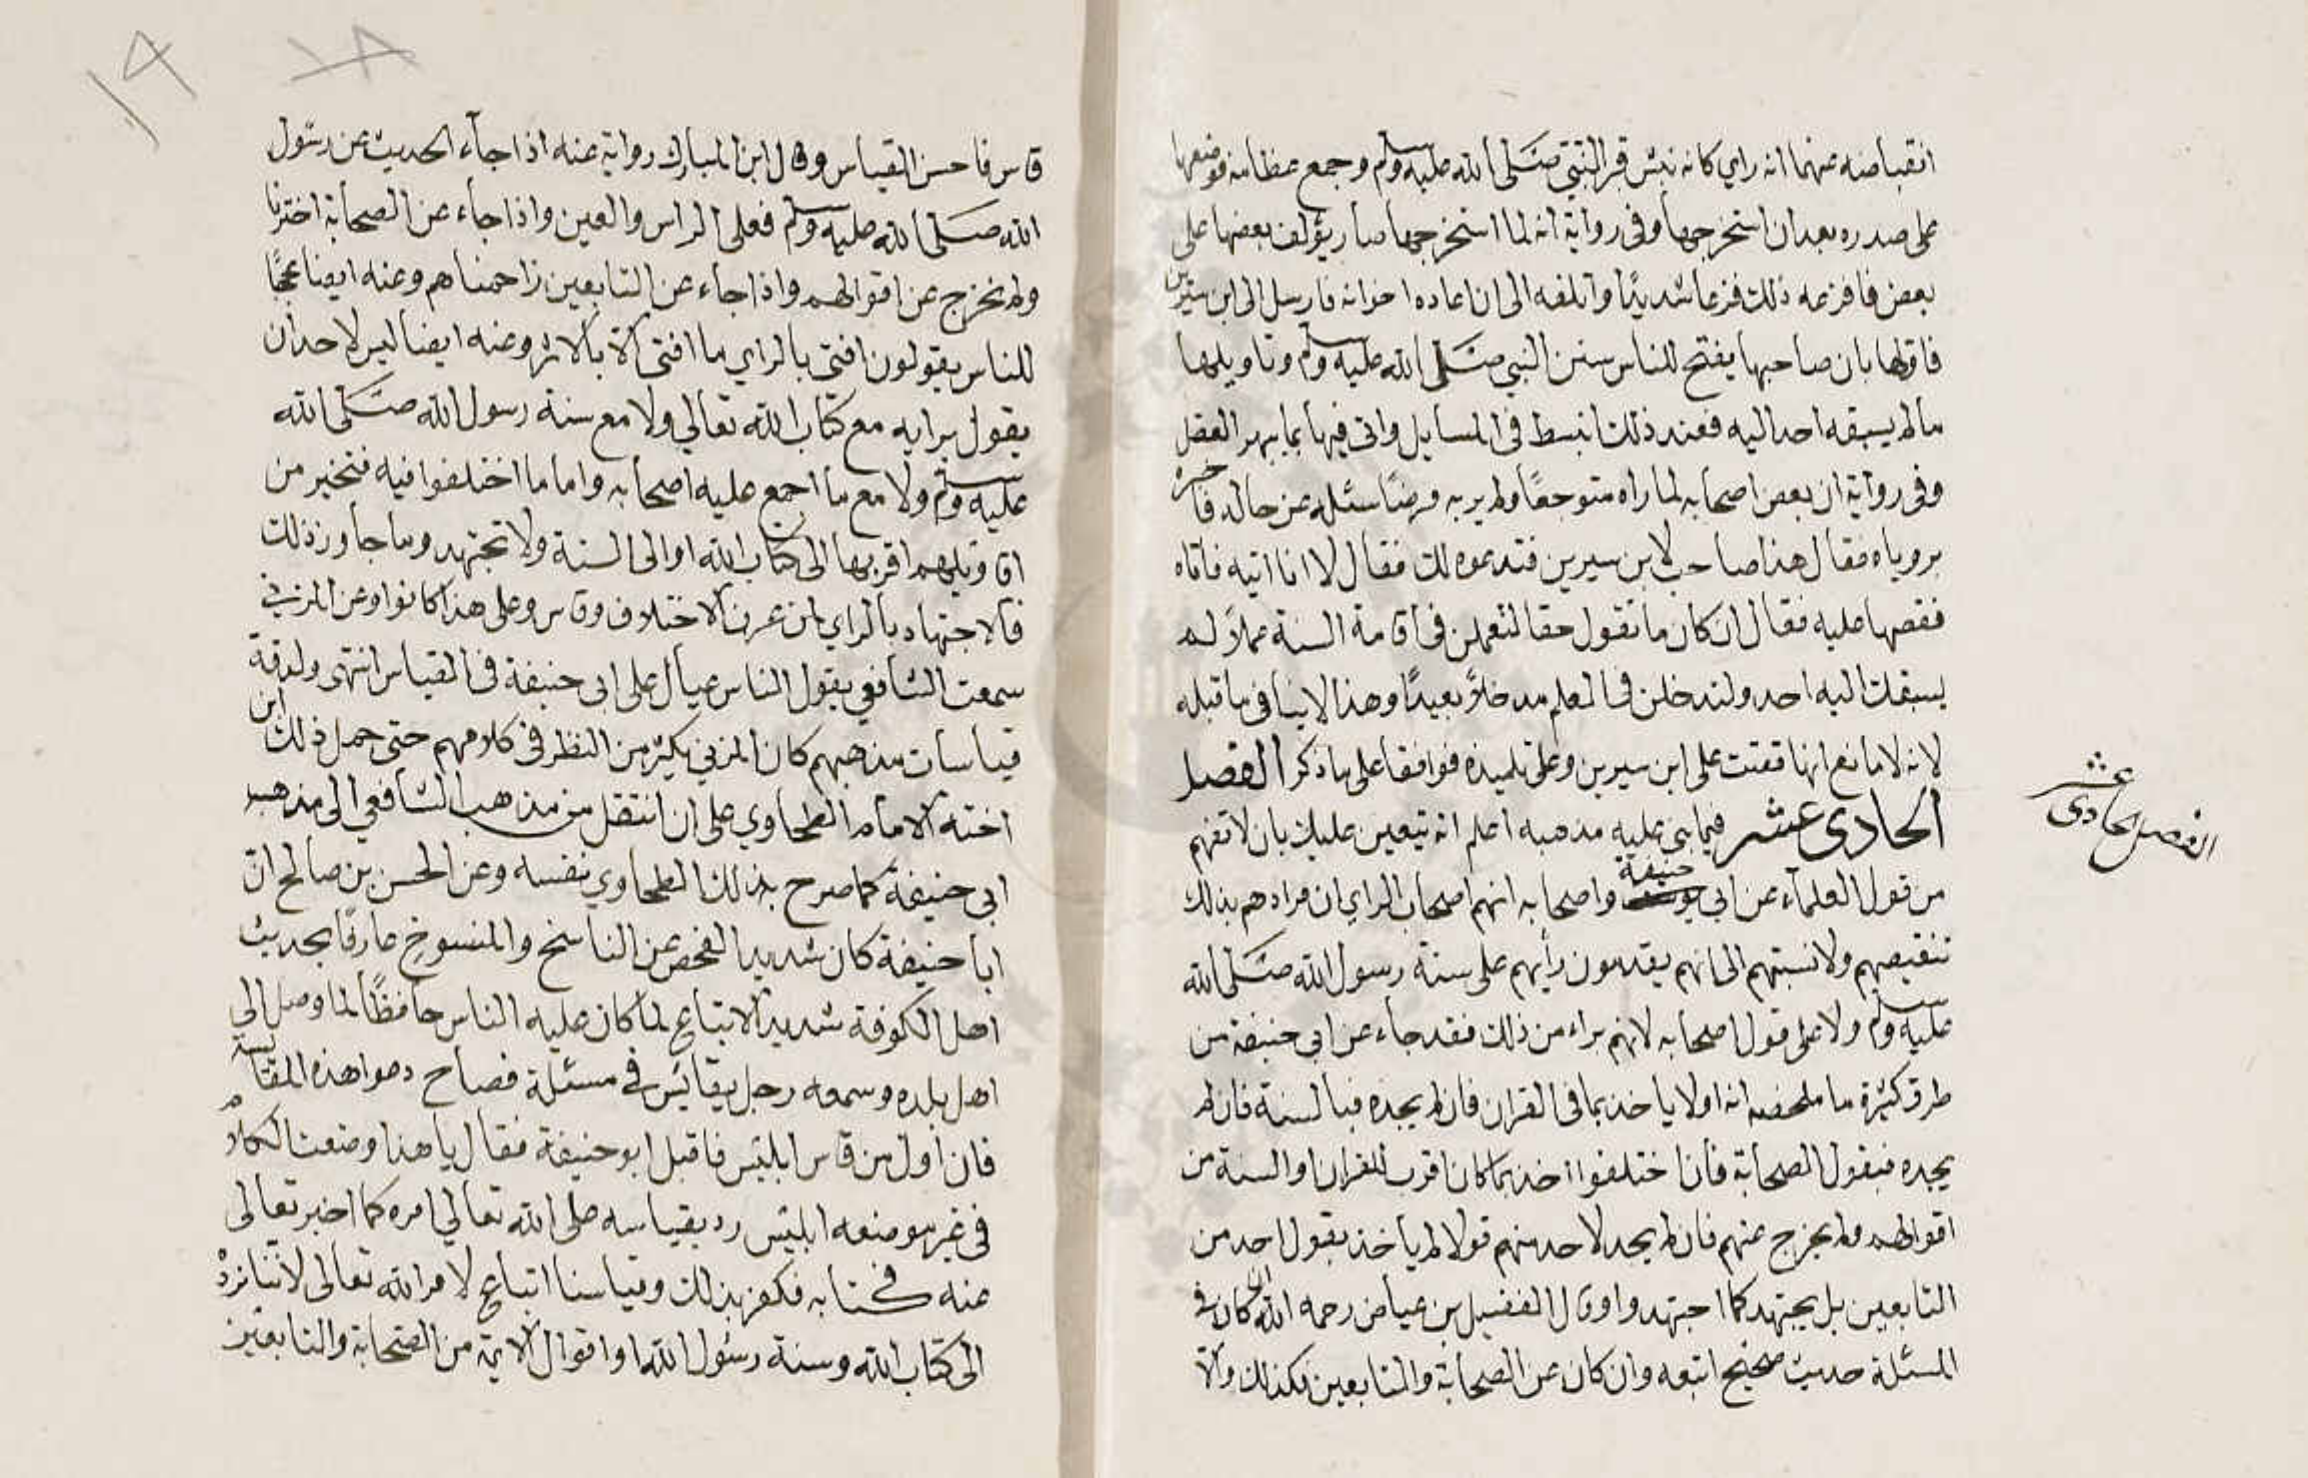 انقباضه عنهما انه راي كانه نبش قبر النبي صلى الله عليه وسلم وجمع عظامه فوضعها
على صدره بعد ان استخرجها وفى رواية انه لما استخرجها صار يؤلف بعضها على
بعض فافزعه ذلك فزعا شديدًا واتلفه الى ان اعاده اخوانه فارسل الى ابن سيرين
فاولها بان صاحبها يفتح للناس سنن النبي صلى الله عليه وسلم وتاويلها
ما لم يسبقه احد اليه فعند ذلك انبسط فى المسايل واتى فيها بما يبهر العقل
وفى رواية ان بعض اصحابه لما راه متوجعًا ولم ير به مرضًا سئله عن حاله فاخبره
بروياه فقال هذا صاحب لابن سيرين فندعوه لك فقال لا انا اتيه فاتاه
فقصها عليه فقال ان كان ما تقول حقا لتعملن فى اقامة السنة عملاً لم
يسبقك اليه احد ولتدخلن فى العلم مدخلاً بعيدًا وهذا لا ينافى ما قبله
لانه لا مانع انها قصت على ابن سيرين وعلى تلميذه فوافقا على ما ذكر الفصل
الحادى عشر فيما بنى عليه مذهبه اعلم انه يتعين عليك بان لا تفهم
من قول العلمآء عن ابي حنيفة واصحابه انهم اصحاب الراي ان مرادهم بذلك
تنقيصهم ولا نسبتهم الى انهم يقدمون رأيهم على سنة رسول الله صلى الله
عليه وسلم ولا على قول اصحابه لانهم براء من ذلك فقد جاء عن ابي حنيفة من
طرق كثيرة ما ملخصه انه اولا ياخذ بما فى القران فان لم يجده فبالسنة فان لم
يجده فبقول الصحابة فان اختلفوا اخذ بما كان اقرب للقران او السنة من
اقوالهم ولم يخرج عنهم فان لم يجد لاحد منهم قولا لم يأخذ بقول احد من
التابعين بل يجتهد كما اجتهدوا وقال الفضيل بن عياض رحمه الله ان كان فى
المسئلة حديث صحيح اتبعه وان كان عن الصحابة والتابعين فكذلك والّا
الفصل الحادى عشر
١٨
١٩
قاس فاحسن القياس وقال ابن المبارك رواية عنه اذا جآء الحديث عن رسول
الله صلى الله عليه وسلم فعلى الراس والعين واذا جاء عن الصحابة اخترنا
ولم نخرج عن اقوالهم واذا جاء عن التابعين زاحمناهم وعنه ايضا عجبًا
للناس يقولون افتى بالراي ما افتى الا بالاثر وعنه ايضا ليس لاحد ان
يقول برايه مع كتاب الله تعالي ولا مع سنة رسول الله صلى الله
عليه وسلم ولا مع ما اجمع عليه اصحابه واما ما اختلفوا فيه فنتخير من
اقاويلهم اقربها الى كتاب الله او الى السنة ولا نجتهد وما جاوز ذلك
فالاجتهاد بالراي لمن عرف الاختلاف وقاس وعلى هذا كانوا وعن المزني
سمعت الشافعي يقول الناس عيال على ابى حنيفة فى القياس انتهى ولدقة
قياسات مذهبهم كان المزني يكثر من النظر فى كلامهم حتى حمل ذلك ابن
اخته الامام الطحاوي على ان انتقل من مذهب الشافعي الى مذهب
ابي حنيفة كما صرح بذلك الطحاوي نفسه وعن الحسن بن صالح انّ
ابا حنيفة كان شديد الفحص عن الناسخ والمنسوخ عارفًا بحديث
اهل الكوفة شديد الاتباع لما كان عليه الناس حافظًا لما وصل الى
اهل بلده وسمعه رجل يقائس فى مسئلة فصاح دعوا هذه المقايسة
فان اول من قاس ابليس فاقبل ابو حنيفة فقال يا هذا وضعت الكلام
فى غير موضعه ابليس رد بقياسه على الله تعالي امره كما اخبر تعالى
عنه فى كتابه فكفر بذلك وقياسنا اتباع لامر الله تعالى لاننا نرده
الى كتاب الله وسنة رسول الله او اقوال الائمة من الصحابة والتابعين